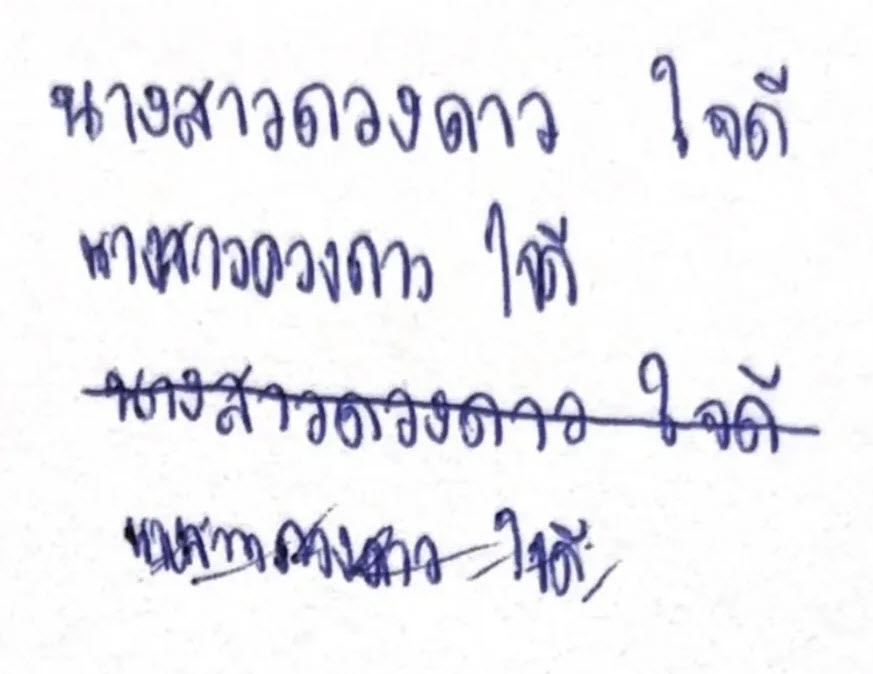 นางสาวดวงดาว ใจดี
นางสาวดวงดาว ใจดี
นางสาวดวงดาว ใจดี
นางสาวดวงดาว ใจดี